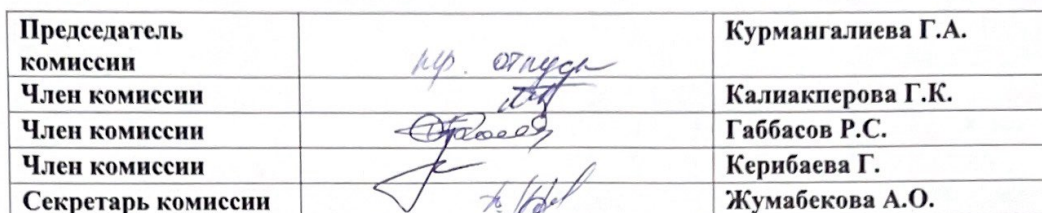 Председатель комиссии отпуск Курмангалиева Г.А.
Член комиссии Калиакперова Г.К.
Член комиссии Габбасов Р.С.
Член комиссии Керибаева Г.
Секретарь комиссии Жумабекова А.О.